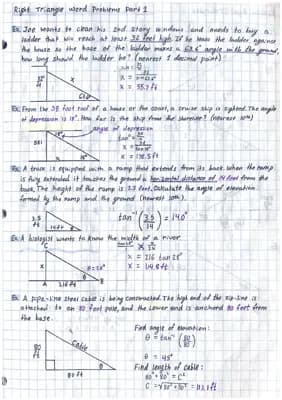 Right Triangle Word Problems Part 1
Ex: Joe wants to clean his 2nd story windows and needs to buy a
ladder that will reach at least 32 feet high. If he leans the ladder against
the house so the base of the ladder makes a 63.6° angle with the ground,
how long should the ladder be? (nearest 1 decimal point)
32
ft
x
x = 35.7 ft
Ex: From the 38 foot roof of a house on the coast, a cruise ship is sighted. The angle
of depression is 12°. How far is the ship from the shoreline? (nearest 10th)
angle of depression
x = 178.5 ft
Ex: A truck is equipped with a ramp that extends from its back. When the ramp
is fully extended it touches the ground a horizontal distance of 14 feet from the
back. The height of the ramp is 3.5 feet. Calculate the angle of elevation
formed by the ramp and the ground (nearest 10th).
3.5
ft
14 ft
tan⁻¹ (3.5/14) = 14.0°
Ex: A biologist wants to know the width of a river
C
x
x = 216 tan 28°
x = 114.8 ft
A 216 ft B
Ex: A zip-line steel cable is being constructed. The high end of the zip-line is
attached to an 80 foot pole, and the lower end is anchored 80 feet from
the base.
80
ft
cable
80 ft
Find angle of elevation:
θ = tan⁻¹ (80/80)
θ = 45°
Find length of cable:
80² + 80² = C²
C = √80² + 80² = 113.1 ft